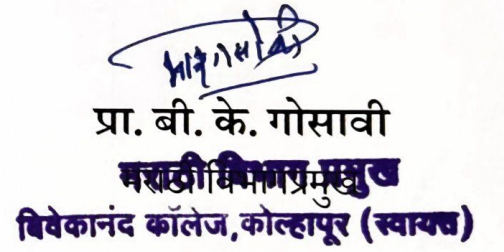 प्रा. बी. के. गोसावी
मराठी विभाग प्रमुख
विवेकानंद कॉलेज,कोल्हापूर (स्वायत्त)